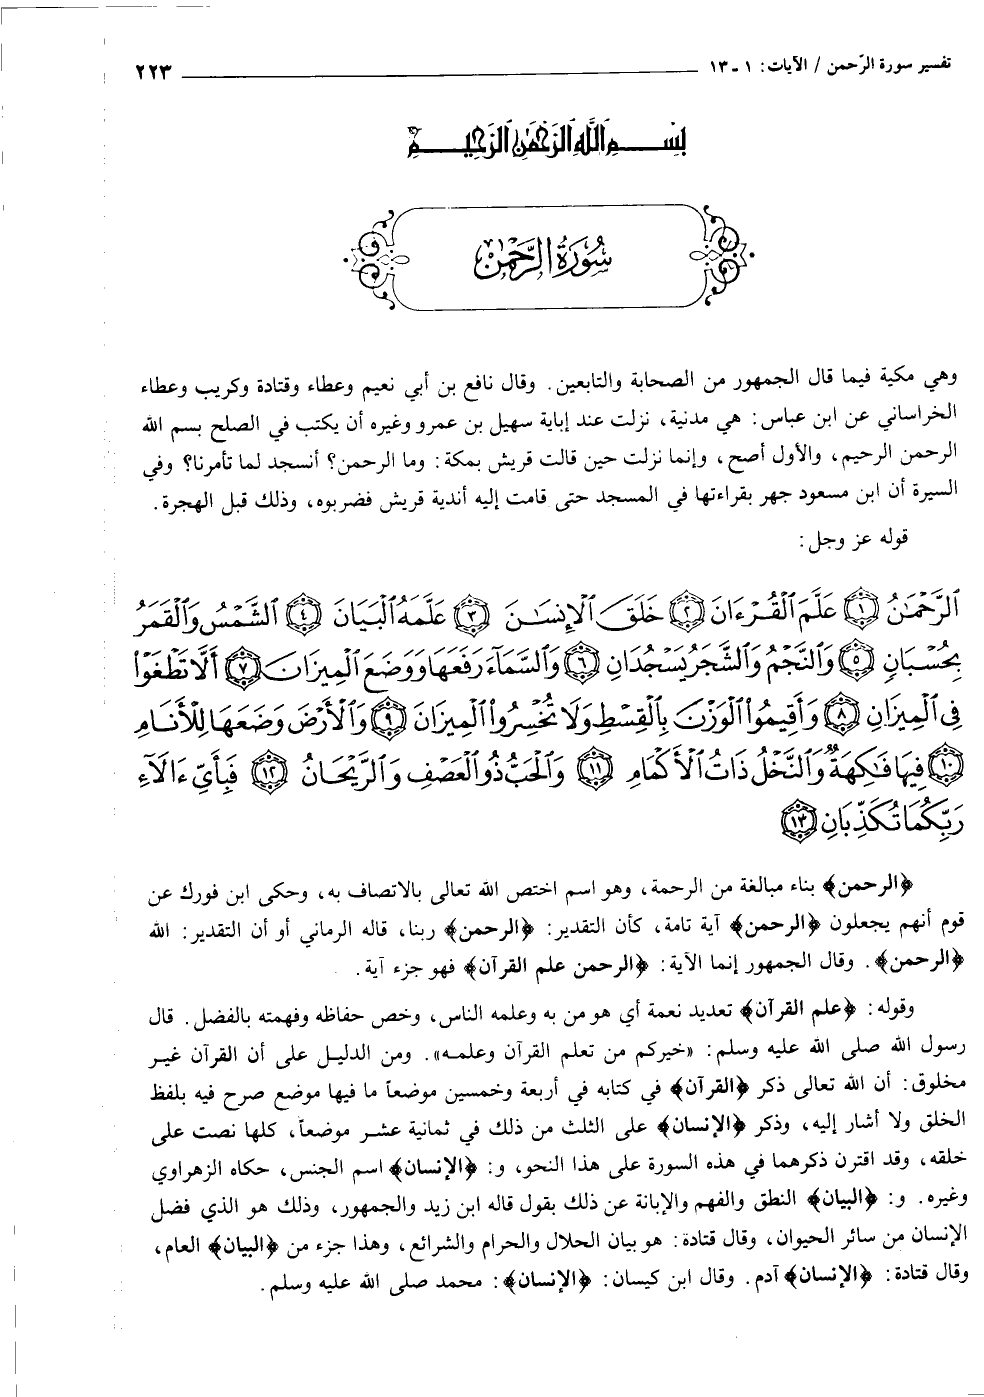 تفسير سورة الرّحمن / الآيات: ١ - ١٣ ٢٢٣
بِسْمِ اللَّهِ الرَّحْمَٰنِ الرَّحِيمِ
سُورَةُ الرَّحْمَٰن
وهي مكية فيما قال الجمهور من الصحابة والتابعين. وقال نافع بن أبي نعيم وعطاء وقتادة وكريب وعطاء
الخراساني عن ابن عباس: هي مدنية، نزلت عند إباية سهيل بن عمرو وغيره أن يكتب في الصلح بسم الله
الرحمن الرحيم، والأول أصح، وإنما نزلت حين قالت قريش بمكة: وما الرحمن؟ أنسجد لما تأمرنا؟ وفي
السيرة أن ابن مسعود جهر بقراءتها في المسجد حتى قامت إليه أندية قريش فضربوه، وذلك قبل الهجرة.
قوله عز وجل:
الرَّحْمَٰنُ ١ عَلَّمَ الْقُرْءَانَ ٢ خَلَقَ الْإِنسَٰنَ ٣ عَلَّمَهُ الْبَيَانَ ٤ الشَّمْسُ وَالْقَمَرُ
بِحُسْبَانٍ ٥ وَالنَّجْمُ وَالشَّجَرُ يَسْجُدَانِ ٦ وَالسَّمَآءَ رَفَعَهَا وَوَضَعَ الْمِيزَانَ ٧ أَلَّا تَطْغَوْا
فِي الْمِيزَانِ ٨ وَأَقِيمُوا الْوَزْنَ بِالْقِسْطِ وَلَا تُخْسِرُوا الْمِيزَانَ ٩ وَالْأَرْضَ وَضَعَهَا لِلْأَنَامِ
١٠ فِيهَا فَٰكِهَةٌ وَالنَّخْلُ ذَاتُ الْأَكْمَامِ ١١ وَالْحَبُّ ذُو الْعَصْفِ وَالرَّيْحَانُ ١٢ فَبِأَيِّ ءَالَآءِ
رَبِّكُمَا تُكَذِّبَانِ ١٣
﴿الرحمن﴾ بناء مبالغة من الرحمة، وهو اسم اختص الله تعالى بالاتصاف به، وحكى ابن فورك عن
قوم أنهم يجعلون ﴿الرحمن﴾ آية تامة، كأن التقدير: ﴿الرحمن﴾ ربنا، قاله الرماني أو أن التقدير: الله
﴿الرحمن﴾. وقال الجمهور إنما الآية: ﴿الرحمن علم القرآن﴾ فهو جزء آية.
وقوله: ﴿علم القرآن﴾ تعديد نعمة أي هو من به وعلمه الناس، وخص حفاظه وفهمته بالفضل. قال
رسول الله صلى الله عليه وسلم: «خيركم من تعلم القرآن وعلمه». ومن الدليل على أن القرآن غير
مخلوق: أن الله تعالى ذكر ﴿القرآن﴾ في كتابه في أربعة وخمسين موضعاً ما فيها موضع صرح فيه بلفظ
الخلق ولا أشار إليه، وذكر ﴿الإنسان﴾ على الثلث من ذلك في ثمانية عشر موضعاً، كلها نصت على
خلقه، وقد اقترن ذكرهما في هذه السورة على هذا النحو، و: ﴿الإنسان﴾ اسم الجنس، حكاه الزهراوي
وغيره. و: ﴿البيان﴾ النطق والفهم والإبانة عن ذلك بقول قاله ابن زيد والجمهور، وذلك هو الذي فضل
الإنسان من سائر الحيوان، وقال قتادة: هو بيان الحلال والحرام والشرائع، وهذا جزء من ﴿البيان﴾ العام،
وقال قتادة: ﴿الإنسان﴾ آدم. وقال ابن كيسان: ﴿الإنسان﴾: محمد صلى الله عليه وسلم.